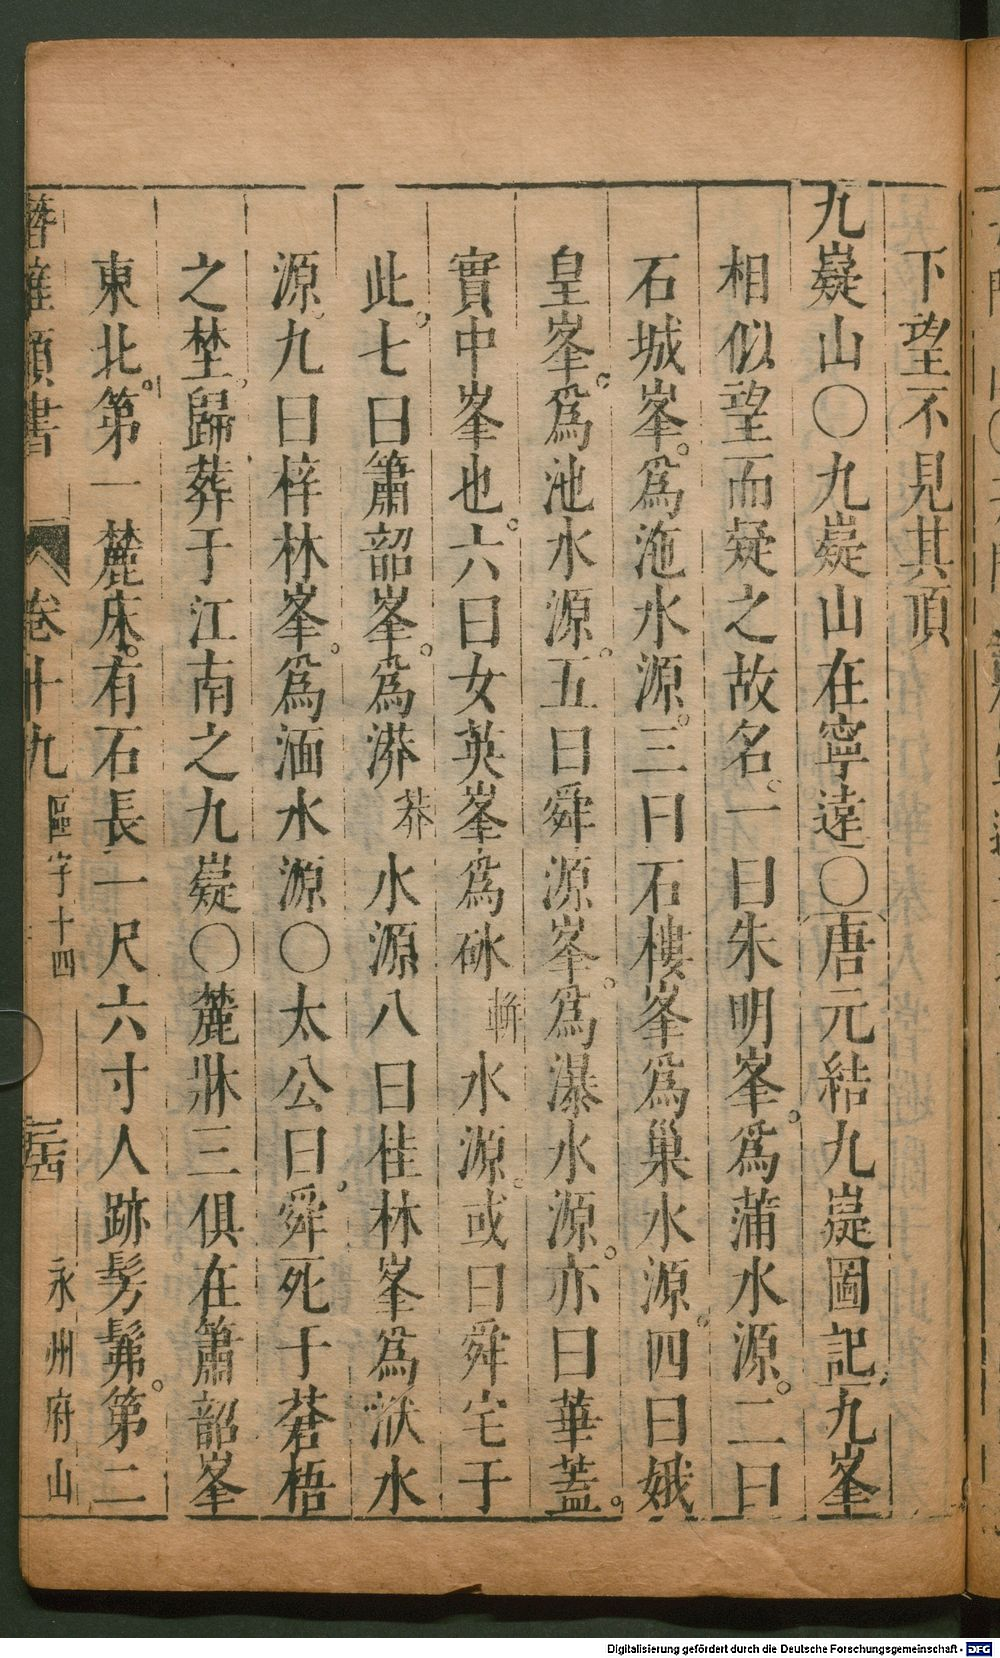 下望不見其頂
九嶷山○九嶷山在寧遠○唐元結九嶷圖記九峯
相似望而疑之故名一曰朱明峯爲蒲水源二曰
石城峯爲沲水源三曰石樓峯爲巢水源四曰娥
皇峯爲池水源五曰舜源峯爲瀑水源亦曰華蓋
實中峯也六曰女英峯爲砅 水源或曰舜宅于
此七曰簫韶峯爲漭莽水源八曰桂林峯爲洑水
源九曰梓林峯爲湎水源○太公曰舜死于蒼梧
之埜歸葬于江南之九嶷○麓牀三俱在簫韶峯
東北第一麓床有石長一尺六寸人跡髣髴第二
類書 卷十九 區字十四 永州府山
Digitalisierung gefördert durch die Deutsche Forschungsgemeinschaft - DFG